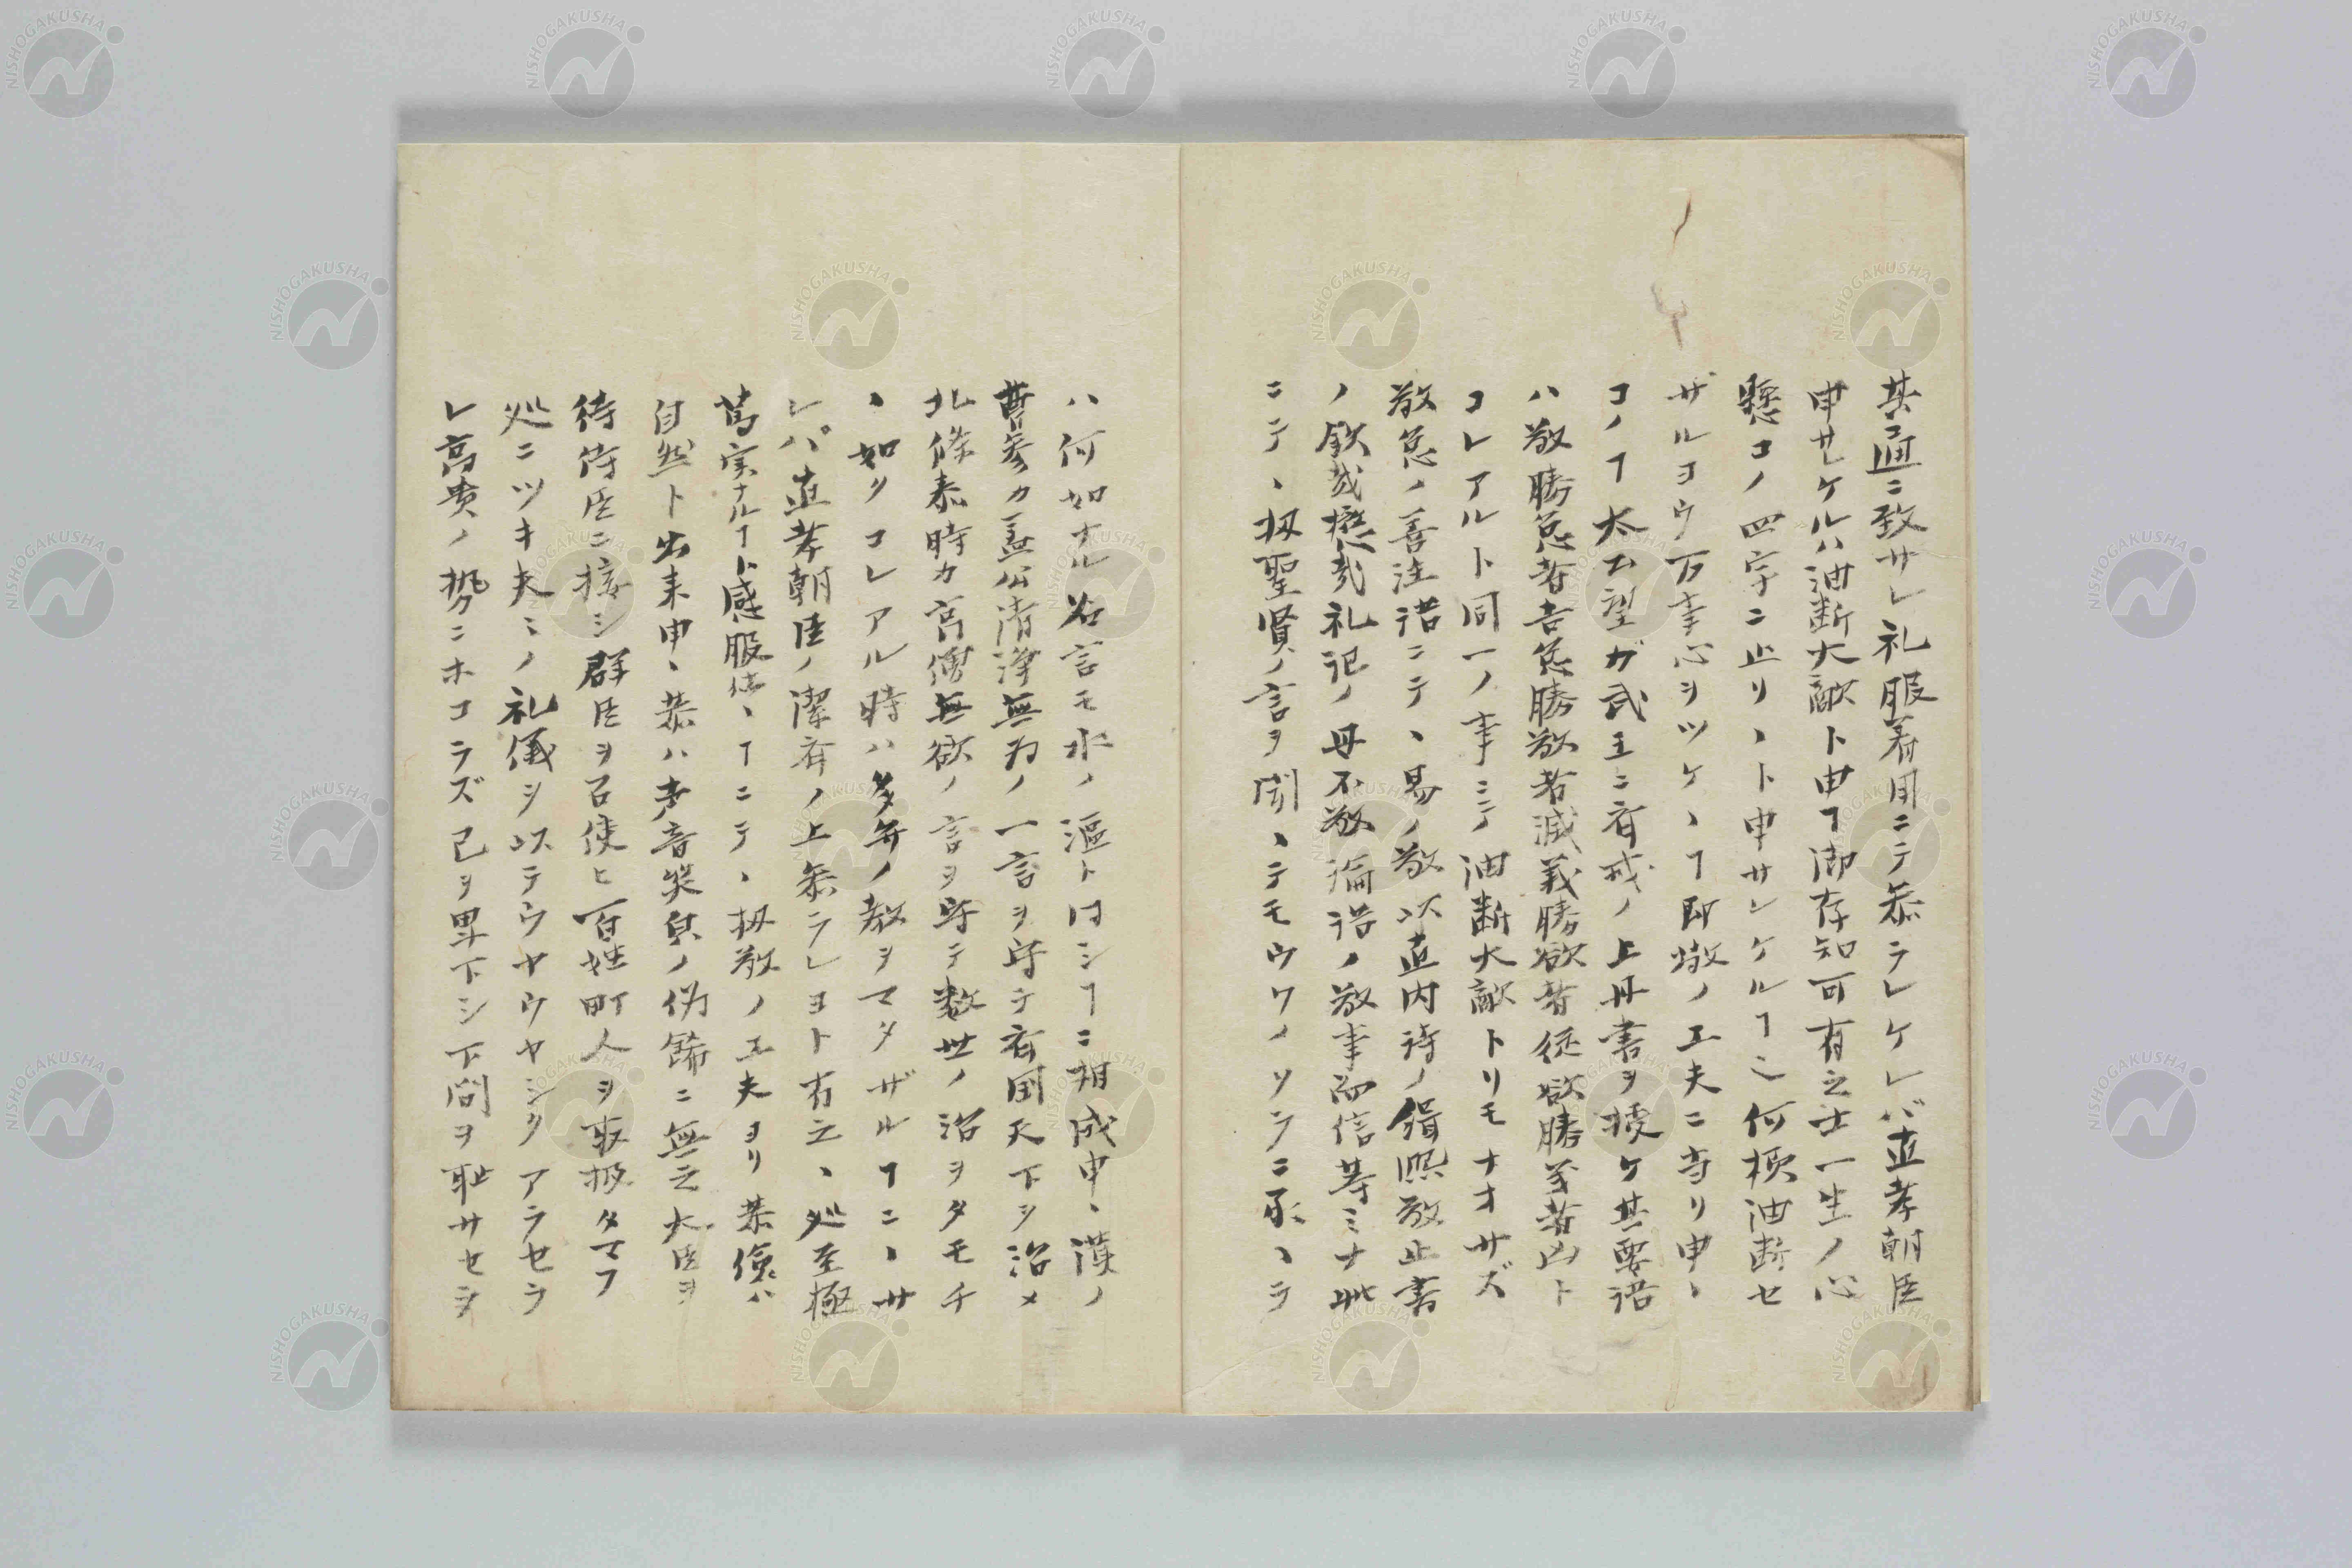 其通ニ致サレ礼服着用ニテ参ラレケレバ直孝朝臣
申サレケルハ油断大敵ト申ヿ御存知可有之士一生ノ心
懸コノ四字ニ止リヽト申サレケルヿニ何様油断セ
ザルヨウ万事心ヲツケヽヿ即敬ノ工夫ニ当リ申ヽ
コノヿ太公望ガ武王ニ有戒ノ上丹書ヲ授ケ其要語
ハ敬勝怠者吉怠勝敬者滅義勝欲者従欲勝義者凶ト
コレアルト同一ノ事ニテ油断大敵トリモナオサズ
敬怠ノ善注諾ニテヽ易ノ敬以直内詩ノ緝熙敬止書
ノ欽哉懋哉礼記ノ毋不敬論語ノ敬事而信等ミナ此
ニテヽ扨聖賢ノ言ヲ聞ヽテモウワノソラニ承ヽテ
ハ何如ナル名言モ水ノ漚ト同シヿニ相成申ヽ漢ノ
曹参カ蓋公清浄無為ノ一言ヲ守テ有国天下ヲ治メ
北條泰時カ高僧無欲ノ言ヲ守テ数世ノ治ヲタモチ
ヽ如クコレアル時ハ多年ノ教ヲマタザルヿニヽサ
レバ直孝朝臣ノ潔斎ノ上参ラレヨト有之ヽ処至極
篤実ナルヿト感服仕ヽヿニテヽ扨敬ノ工夫ヨリ恭儉ハ
自然ト出来申ヽ恭ハ声音笑貌ノ偽飾ニ無之大臣ヲ
待侍臣ニ接シ群臣ヲ召使ヒ百姓町人ヲ取扱タマフ
処ニツキ夫ミノ礼儀ヲ以テウヤウヤシクアラセラ
レ高貴ノ勢ニホコラズ己ヲ卑下シ下問ヲ耻サセヲ
NISHOGAKUSHA